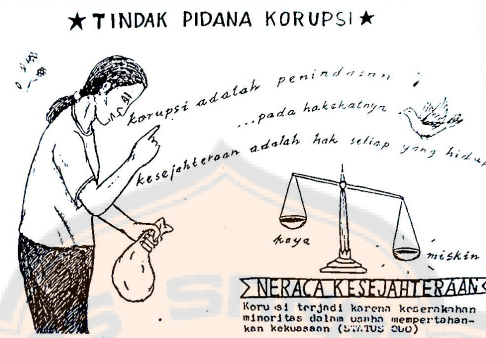 ★ TINDAK PIDANA KORUPSI ★
korupsi adalah penindasan ;
...pada hakekatnya
kesejahteraan adalah hak setiap yang hidup
kaya
miskin
NERACA KESEJAHTERAAN
Korupsi terjadi karena keserakahan
minoritas dalam usaha mempertahan-
kan kekuasaan (STATUS QUO)